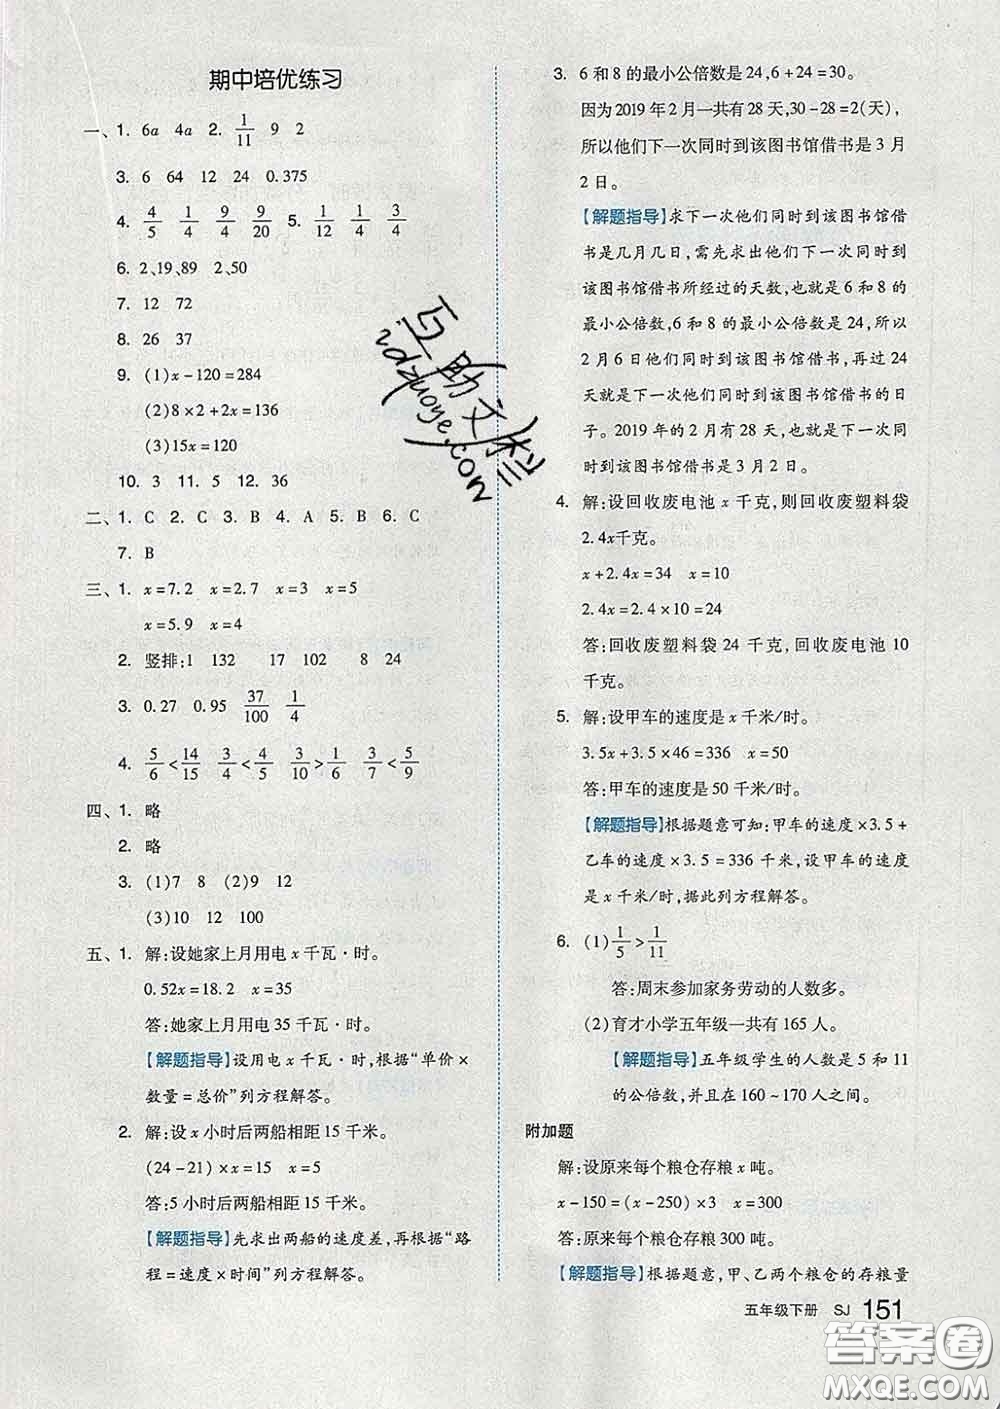 期中培优练习
一、1. 6a 4a 2. 1/11 9 2
3. 6 64 12 24 0.375
4. 4/5 1/4 9/4 9/20 5. 1/12 1/4 3/4
6. 2、19、89 2、50
7. 12 72
8. 26 37
9. (1)x-120=284
(2)8×2+2x=136
(3)15x=120
10. 3 11. 5 12. 36
二、1. C 2. C 3. B 4. A 5. B 6. C
7. B
三、1. x=7.2 x=2.7 x=3 x=5
x=5.9 x=4
2. 竖排:1 132 17 102 8 24
3. 0.27 0.95 37/100 1/4
4. 5/6<14/15 3/4<4/5 3/10>1/6 3/7<5/9
四、1. 略
2. 略
3. (1)7 8 (2)9 12
(3)10 12 100
五、1. 解:设她家上月用电 x 千瓦·时。
0.52x=18.2 x=35
答:她家上月用电 35 千瓦·时。
【解题指导】设用电 x 千瓦·时,根据“单价×
数量=总价”列方程解答。
2. 解:设 x 小时后两船相距 15 千米。
(24-21)×x=15 x=5
答:5 小时后两船相距 15 千米。
【解题指导】先求出两船的速度差,再根据“路
程=速度×时间”列方程解答。
3. 6 和 8 的最小公倍数是 24,6+24=30。
因为 2019 年 2 月一共有 28 天,30-28=2(天),
所以他们下一次同时到该图书馆借书是 3 月
2 日。
【解题指导】求下一次他们同时到该图书馆借
书是几月几日,需先求出他们下一次同时到
该图书馆借书所经过的天数,也就是 6 和 8 的
最小公倍数,6 和 8 的最小公倍数是 24,所以
2 月 6 日他们同时到该图书馆借书,再过 24
天就是他们下一次同时到该图书馆借书的日
子。2019 年的 2 月有 28 天,也就是下一次同
时到该图书馆借书是 3 月 2 日。
4. 解:设回收废电池 x 千克,则回收废塑料袋
2.4x千克。
x+2.4x=34 x=10
2.4x=2.4×10=24
答:回收废塑料袋 24 千克,回收废电池 10
千克。
5. 解:设甲车的速度是 x 千米/时。
3.5x+3.5×46=336 x=50
答:甲车的速度是 50 千米/时。
【解题指导】根据题意可知:甲车的速度×3.5+
乙车的速度×3.5=336 千米,设甲车的速度
是 x 千米/时,据此列方程解答。
6. (1)1/5>1/11
答:周末参加家务劳动的人数多。
(2)育才小学五年级一共有 165 人。
【解题指导】五年级学生的人数是 5 和 11
的公倍数,并且在 160~170 人之间。
附加题
解:设原来每个粮仓存粮 x 吨。
x-150=(x-250)×3 x=300
答:原来每个粮仓存粮 300 吨。
【解题指导】根据题意,甲、乙两个粮仓的存粮量
五年级下册 SJ 151
互助文档
zdzuoye.com
答案圈
MXQE.COM